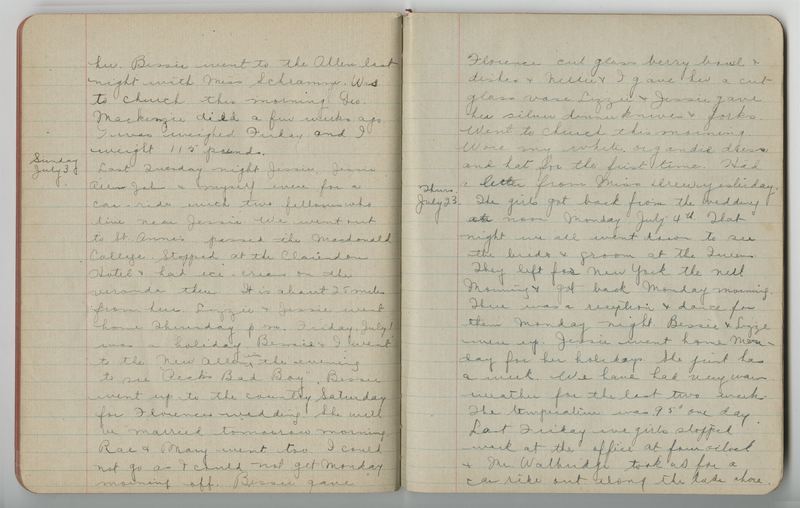 her. Bessie went to the Allen last
night with Miss Schramm. Was
to church this morning. Geo.
Mackenzie died a few weeks ago.
I was weighed Friday and I
weight 115 pounds.
Sunday
July 3
Last Tuesday night Jessie,
& myself were for a
car ride with two fellows who
live near Jessie. We went out
to St. Annes passed the Macdonald
College. Stopped at the Clarendon
Hotel & had ice cream on the
veranda there. It is about 25 miles
from here. Lizzie & Jessie went
home Thursday p.m. Friday, July 1
was a holiday. Bessie & I went
to the New Allen in the evening
to see "Pecks Bad Boy". Bessie
went up to the country Saturday
for Florences wedding. She will
be married tomorrow morning.
Rae & Mary went too. I could
not go as I could not get Monday
morning off. Bessie gave
Florence cut glass berry bowl &
dishes & Nellie & I gave her a cut
glass vase Lizzie & Jessie gave
her silver dinner knives & forks.
Went to church this morning.
Wore my white organdie dress
and hat for the first time. Had
a letter from Miss Drewry yesterday.
Thurs.
July 23.
The girls got back from the wedding
at noon Monday July 4th That
night we all went down to see
the bride & groom at the Queens.
They left for New York the next
Morning & got back Monday morning.
There was a reception & dance for
them Monday night Bessie & Lizzie
were up. Jessie went home Mon-
day for her holidays. She just has
a week. We have had very warm
weather for the last two weeks.
The temperature was 95° one day.
Last Friday we girls stopped
work at the office at four o'clock
& Mr Walbridge took us for a
car ride out along the lake shore.